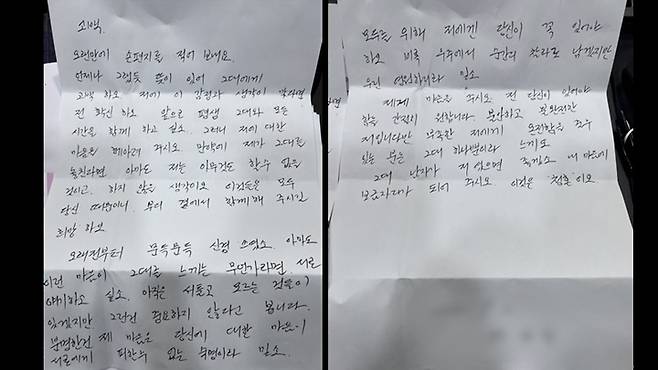 고백
오랜만에 손편지를 적어 보내오.
언제나 그렇듯 뜻이 있어 그대에게
고백 하오. 저에 이 감정과 생각이 같다면
전 확신하오 앞으로 평생 그대와 모든
시간을 함께 하고 싶소. 그러니 저에 대한
마음을 헤아려 주시오. 만약에 제가 그대를
놓친다면, 아마도 저는 아무것도 할수 없을
것이고. 하지 않을 생각이오 이것들은 모두
당신 때문이니. 부디 곁에서 함께해 주시길
희망 하오
오래전부터 문득문득 신경 쓰였소. 아마도
이런 마음이 그대를 느끼는 무언가라면 서로
얘기하고 싶소. 아직은 서툴고 모르는 것들이
있겠지만 그런건 중요하지 않다고 봅니다.
분명한건 제 마음은 당신에 대한 마음이
서로에게 피할수 없는 숙명이라 믿소.
모두를 위해 저에겐 당신이 꼭 있어야
하오 비록 우주에서 순간의 찰나로 남겠지만
우린 영원하리라 믿소
제게 마음을 주시오. 전 당신이 있어야
함을 간절히 원합니다. 불안하고 불완전한
저입니다만 부족한 저에게 온전함을 채우
실 분은 그대 하나뿐이라 느끼오
그대 남자가 저 였으면 좋겠소. 내 마음에
보금자리가 되어 주시오. 이것은 "청혼"이오